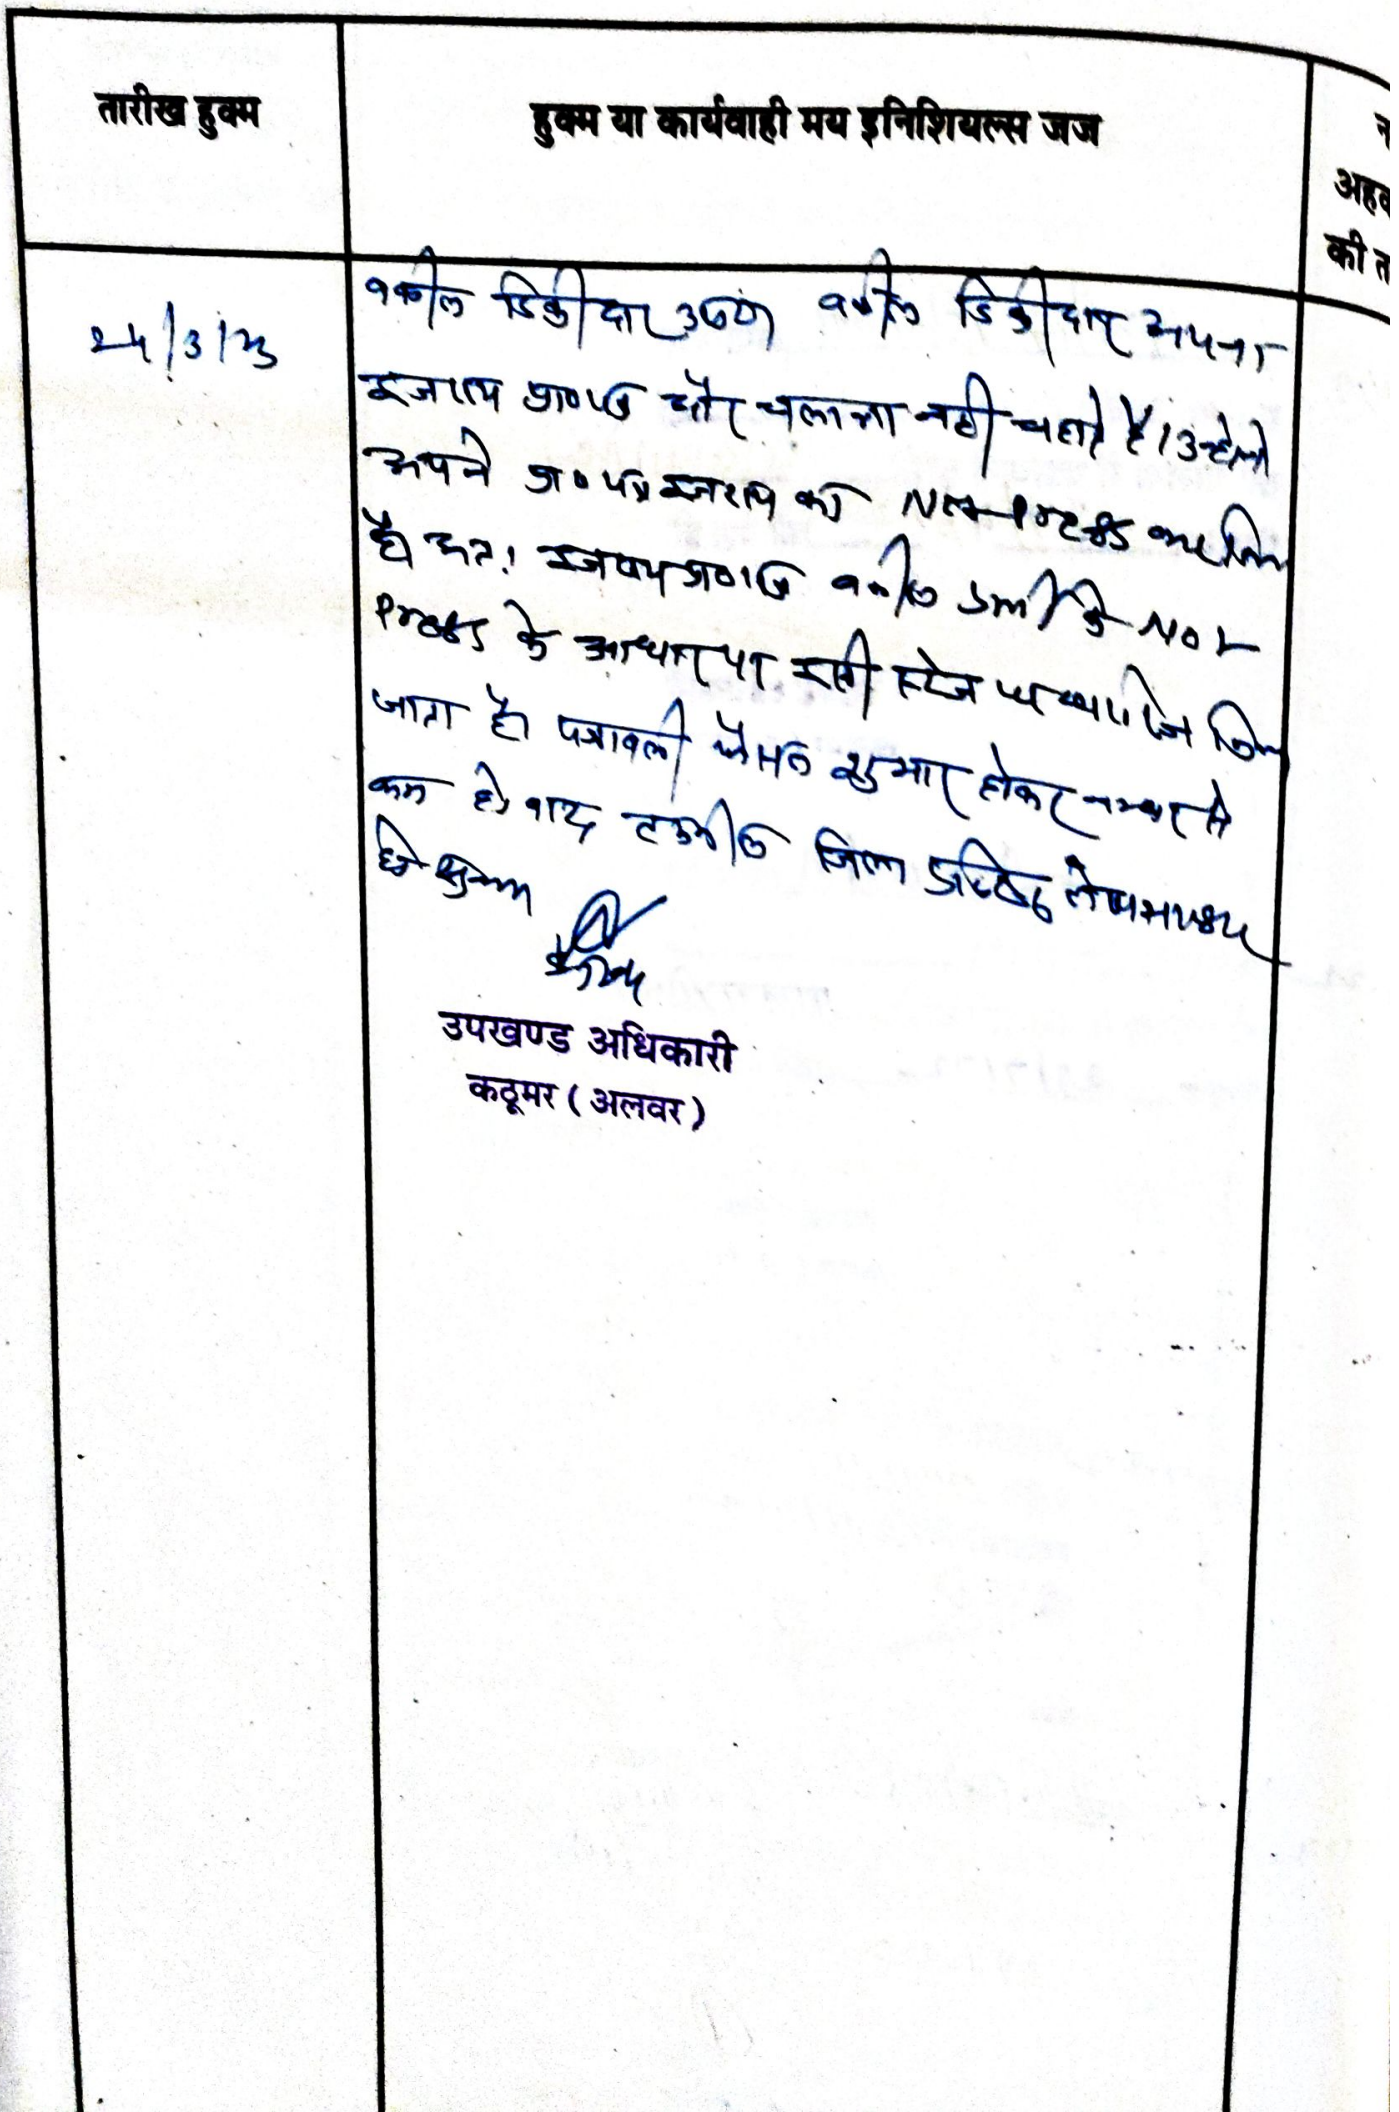 तारीख हुक्म
हुक्म या कार्यवाही मय इनिशियल्स जज
न
अहव
की त
वकील डिक्रीदार उप0 वकील डिक्रीदार अपना
इजराय प्रा0पत्र और चलाना नही चहाते है। उन्होने
अपने प्रा0 पत्र इजराय को Not-Press कर लिया
है अतः इजराय प्रा0पत्र वकील प्रार्थी के Not
Press के आधार पर इसी स्टेज पर खारिज किया
जाता है। पत्रावली फैसल शुमार होकर नम्बर से
कम हो बाद तकमील दाखिल दफ्तर
हो
उपखण्ड अधिकारी
कठूमर (अलवर)